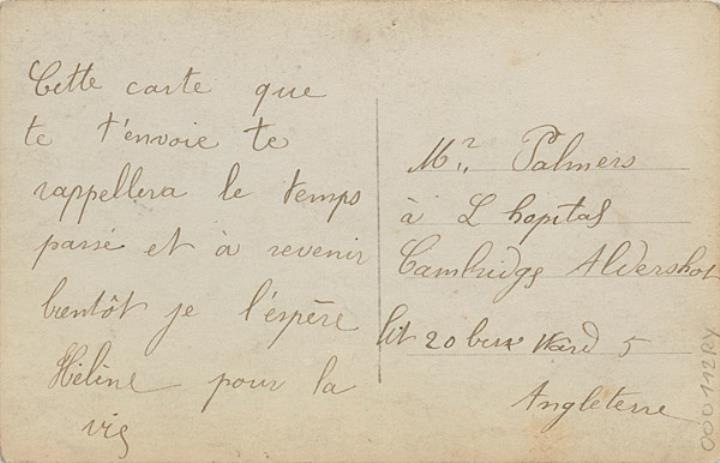 Cette carte que
te t'envoie te
rappellera le temps
passé et à revenir
bientôt je l'espère
Hélène pour la
vie
Mr. Palmers
à L hopital
Cambridge Aldershot
lit 20 Ward 5
Angleterre
000112RY